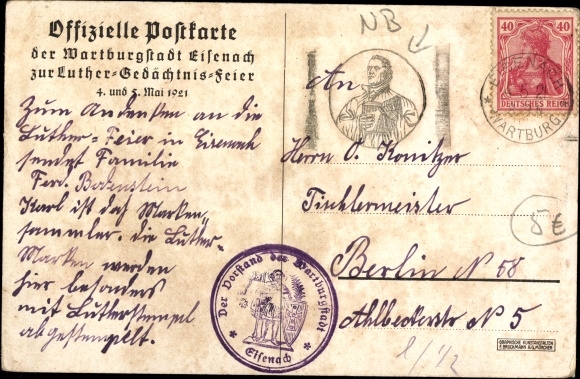 Offizielle Postkarte
der Wartburgstadt Eisenach
zur Luther-Gedächtnis-Feier
4. und 5. Mai 1921
Zum Andenken an die
Luther-Feier in Eisenach
sendet Familie
Ferd. Bodenstein
Karl ist doch Marken-
sammler. die Luther-
Marken werden
hier besonders
mit Lutherstempel
abgestempelt.
NB
An
Herrn O. Konitzer
Tischlermeister
Berlin N 58
Ahlbeckerstr N 5
40 40
DEUTSCHES REICH
EISENACH
WARTBURG
5€
Der Vorstand der Wartburgstadt
Eisenach
GRAPHISCHE KUNSTANSTALTEN
F. BRUCKMANN A.G. MÜNCHEN